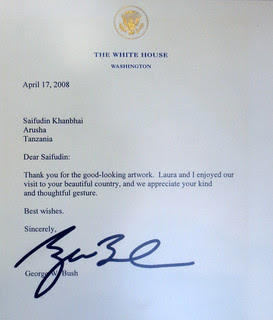 THE WHITE HOUSE
WASHINGTON
April 17, 2008
Saifudin Khanbhai
Arusha
Tanzania
Dear Saifudin:
Thank you for the good-looking artwork. Laura and I enjoyed our
visit to your beautiful country, and we appreciate your kind
and thoughtful gesture.
Best wishes.
Sincerely,
George W. Bush